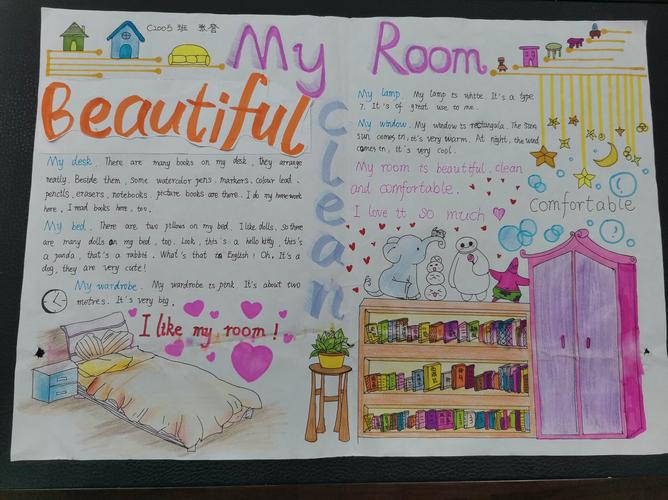 C2005 班
My Room
Beautiful
clean
My desk. There are many books on my desk, they arrange
neatly. Beside them, some watercolor pens, markers, colour lead
pencils, erasers, notebooks, picture books are there. I do my homework
here, I read books here, too.
My bed. There are two pillows on my bed. I like dolls, so there
are many dolls on my bed, too. Look, this is a hello kitty, this's
a panda, that's a rabbit. What's that in English? Oh, It's a
dog, they are very cute!
My wardrobe. My wardrobe is pink. It's about two
metres. It's very big.
I like my room!
My lamp. My lamp is white. It's a type
7. It's of great use to me.
My window. My window is rectangala. The
sun comes in, it's very warm. At night, the wind
comes in, it's very cool.
My room is beautiful, clean
and comfortable.
I love it so much
Comfortable